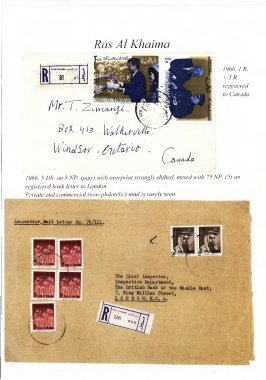 Ras Al Khaima
1966, 1 R.
+ 3 R.
registered
to Canada
R
81
Mr. T. Zimanyi
Box 413 Walkerville
Windsor, Ontario.
Canada
1966, 5 Dh. on 5 NP. (pair) with overprint strongly shifted, mixed with 75 NP. (5) on
registered bank letter to London
Private and commercial (nonphilatelic) mail is rarely seen.
Inspection Mail Letter No. 75/121.
The Chief Inspector,
Inspection Department,
The British Bank of the Middle East,
7, King William Street,
LONDON, E.C.4.
R